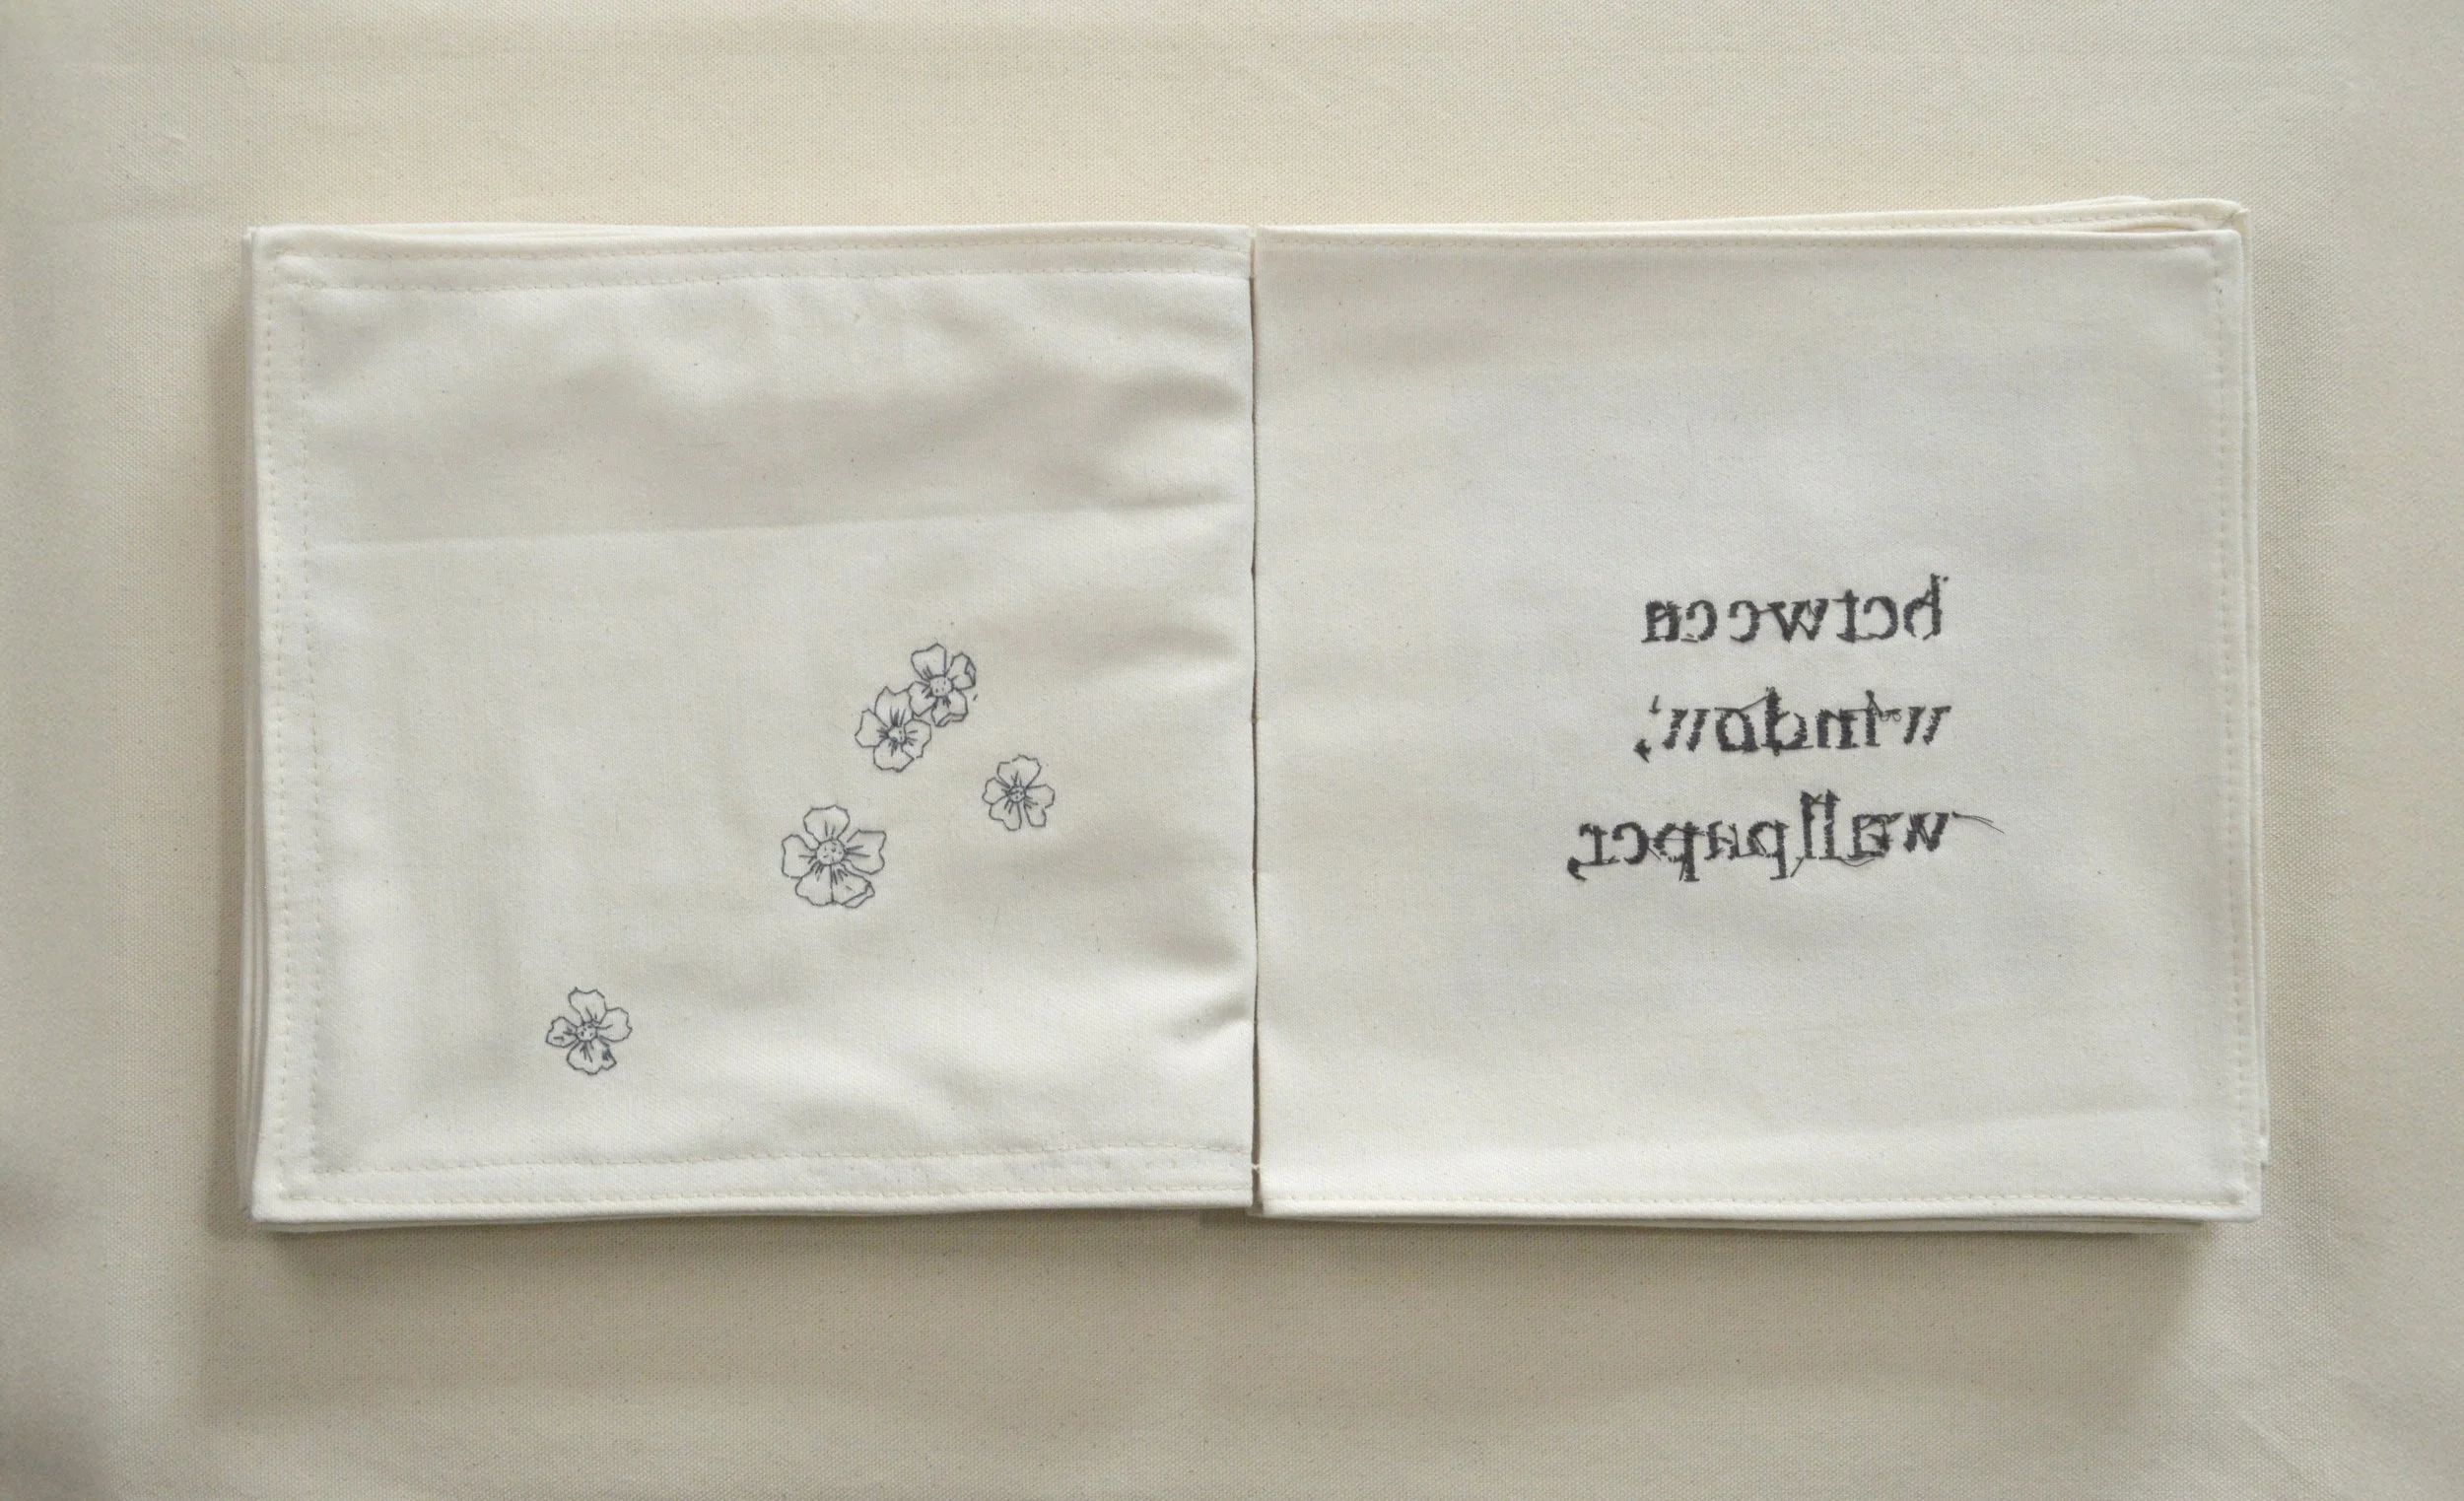 between
window,
wallpaper,